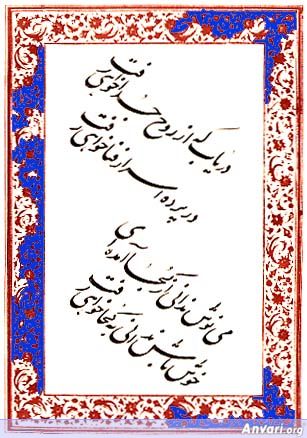 دریاب که از روح جدا خواهی رفت
در پرده اسرار فنا خواهی رفت
می نوش ندانی ز کجا آمده‌ای
خوش باش ندانی به کجا خواهی رفت
Anvari.org